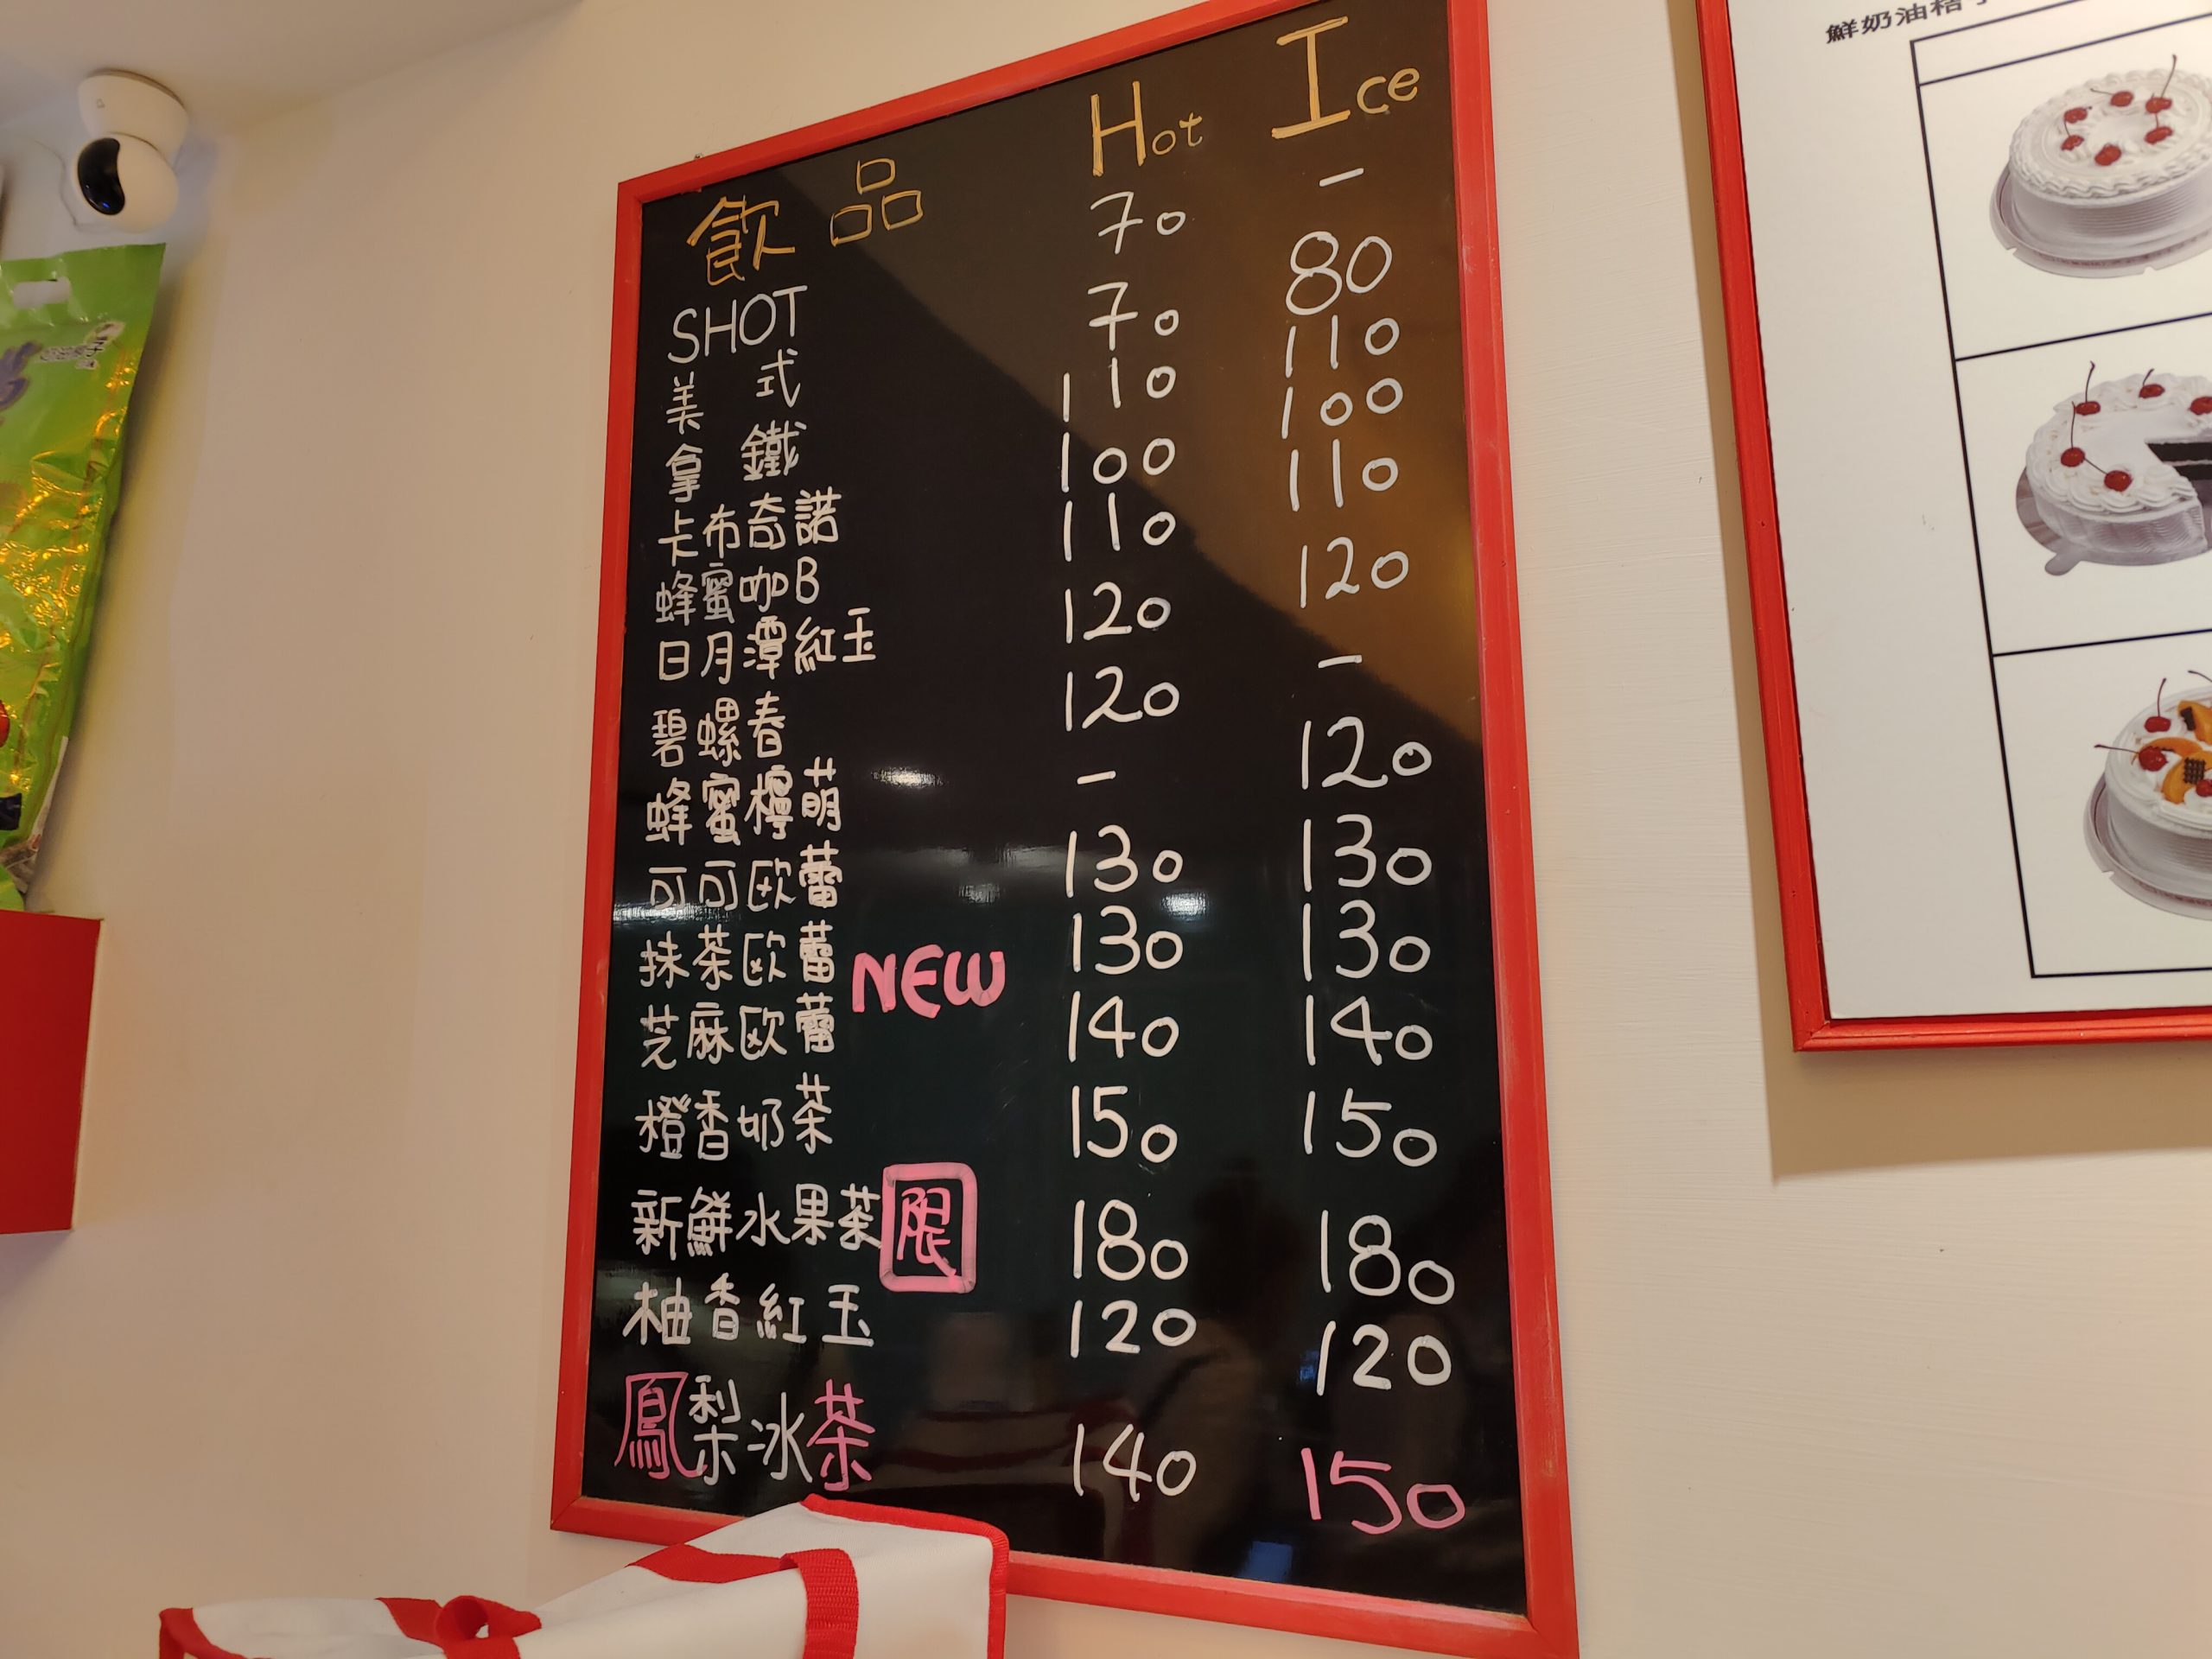 飲品 Hot Ice
SHOT 70 –
美式 70 80
拿鐵 110 110
卡布奇諾 100 100
蜂蜜咖B 110 110
日月潭紅玉 120 120
碧螺春 120 –
蜂蜜檸萌 – 120
可可欧蕾 130 130
抹茶欧蕾 NEW 130 130
芝麻欧蕾 140 140
橙香奶茶 150 150
新鮮水果茶 限 180 180
柚香紅玉 120 120
鳳梨冰茶 140 150
鮮奶油